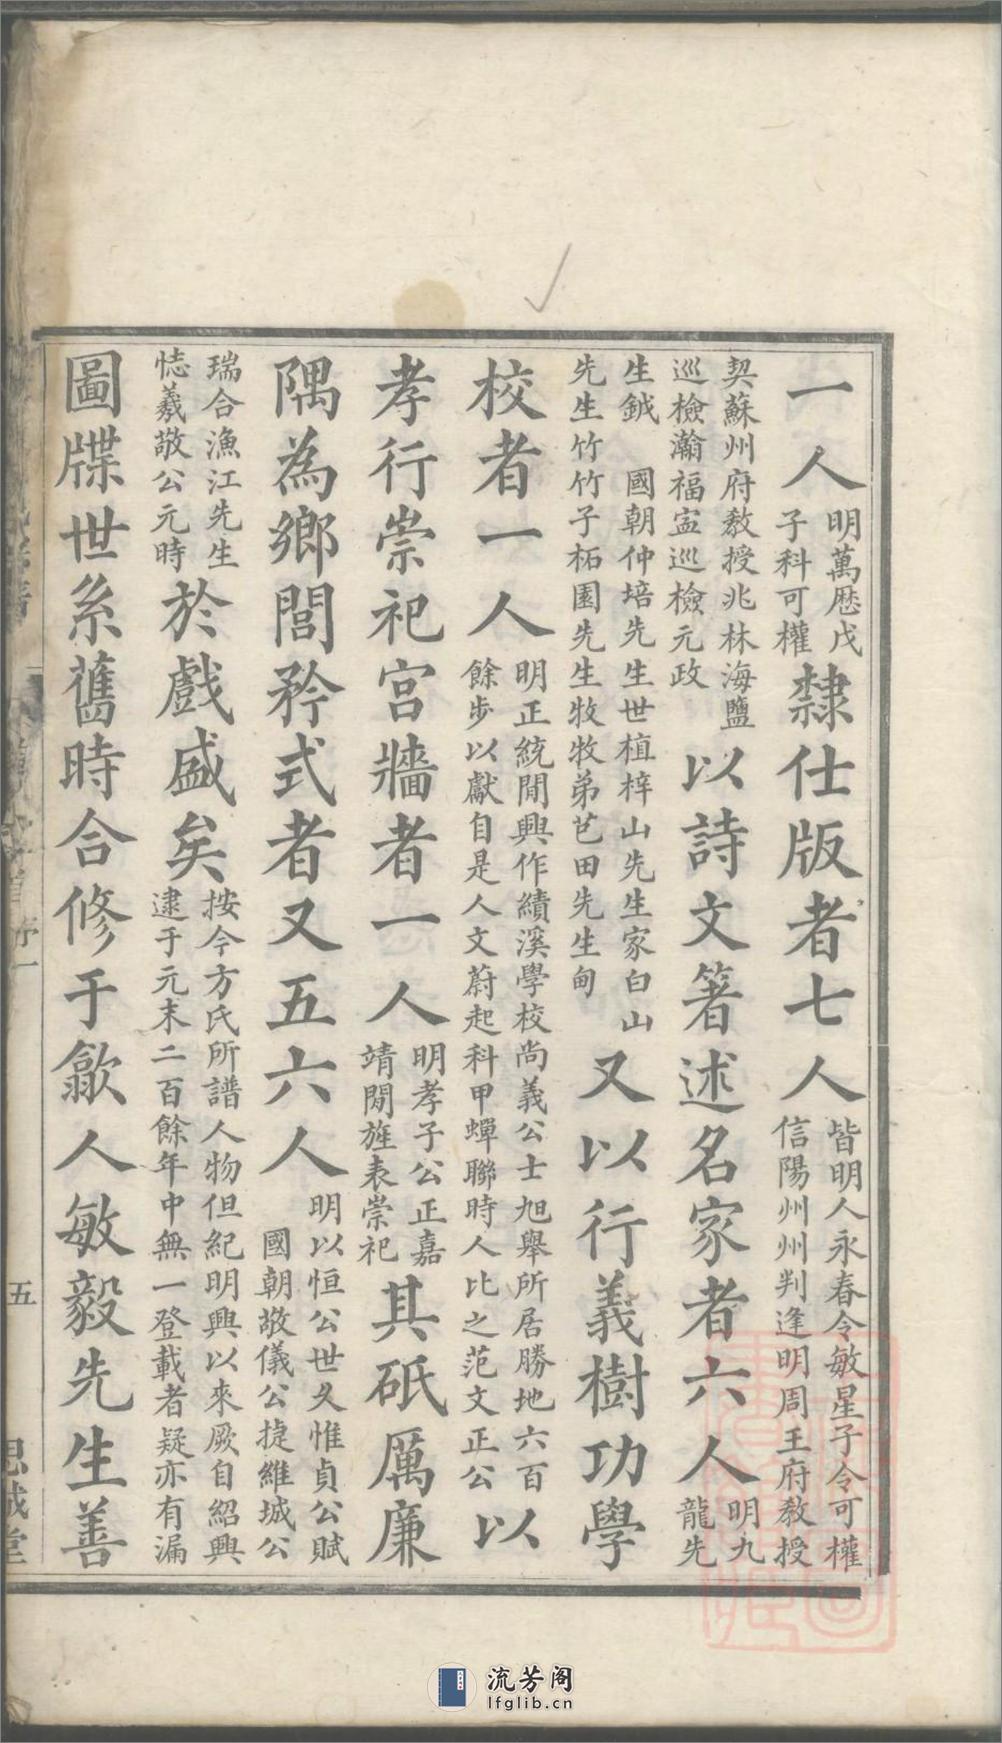 一人明萬厯戊子科可權隸仕版者七人皆明人永春令敏星子令可權信陽州州判逢明周王府教授
契蘇州府教授兆林海鹽巡檢瀚福寍巡檢元政以詩文箸述名家者六人明九龍先
生鉞　國朝仲培先生世植梓山先生家白山先生竹竹子柘園先生牧牧弟芑田先生甸又以行義樹功學
校者一人明正統閒興作績溪學校尚義公士旭舉所居勝地六百餘步以獻自是人文蔚起科甲蟬聯時人比之范文正公以
孝行崇祀宮牆者一人明孝子公正嘉靖閒旌表崇祀其砥厲廉
隅為鄉閭矜式者又五六人明以恒公世乆惟貞公賦　國朝敬儀公捷維城公
瑞合漁江先生恅羲敬公元時於戲盛矣按今方氏所譜人物但紀明興以來厥自紹興逮于元末二百餘年中無一登載者疑亦有漏
圖牒世系舊時合修于歙人敏毅先生善
序一
五
思誠堂
流芳阁
lfglib.cn